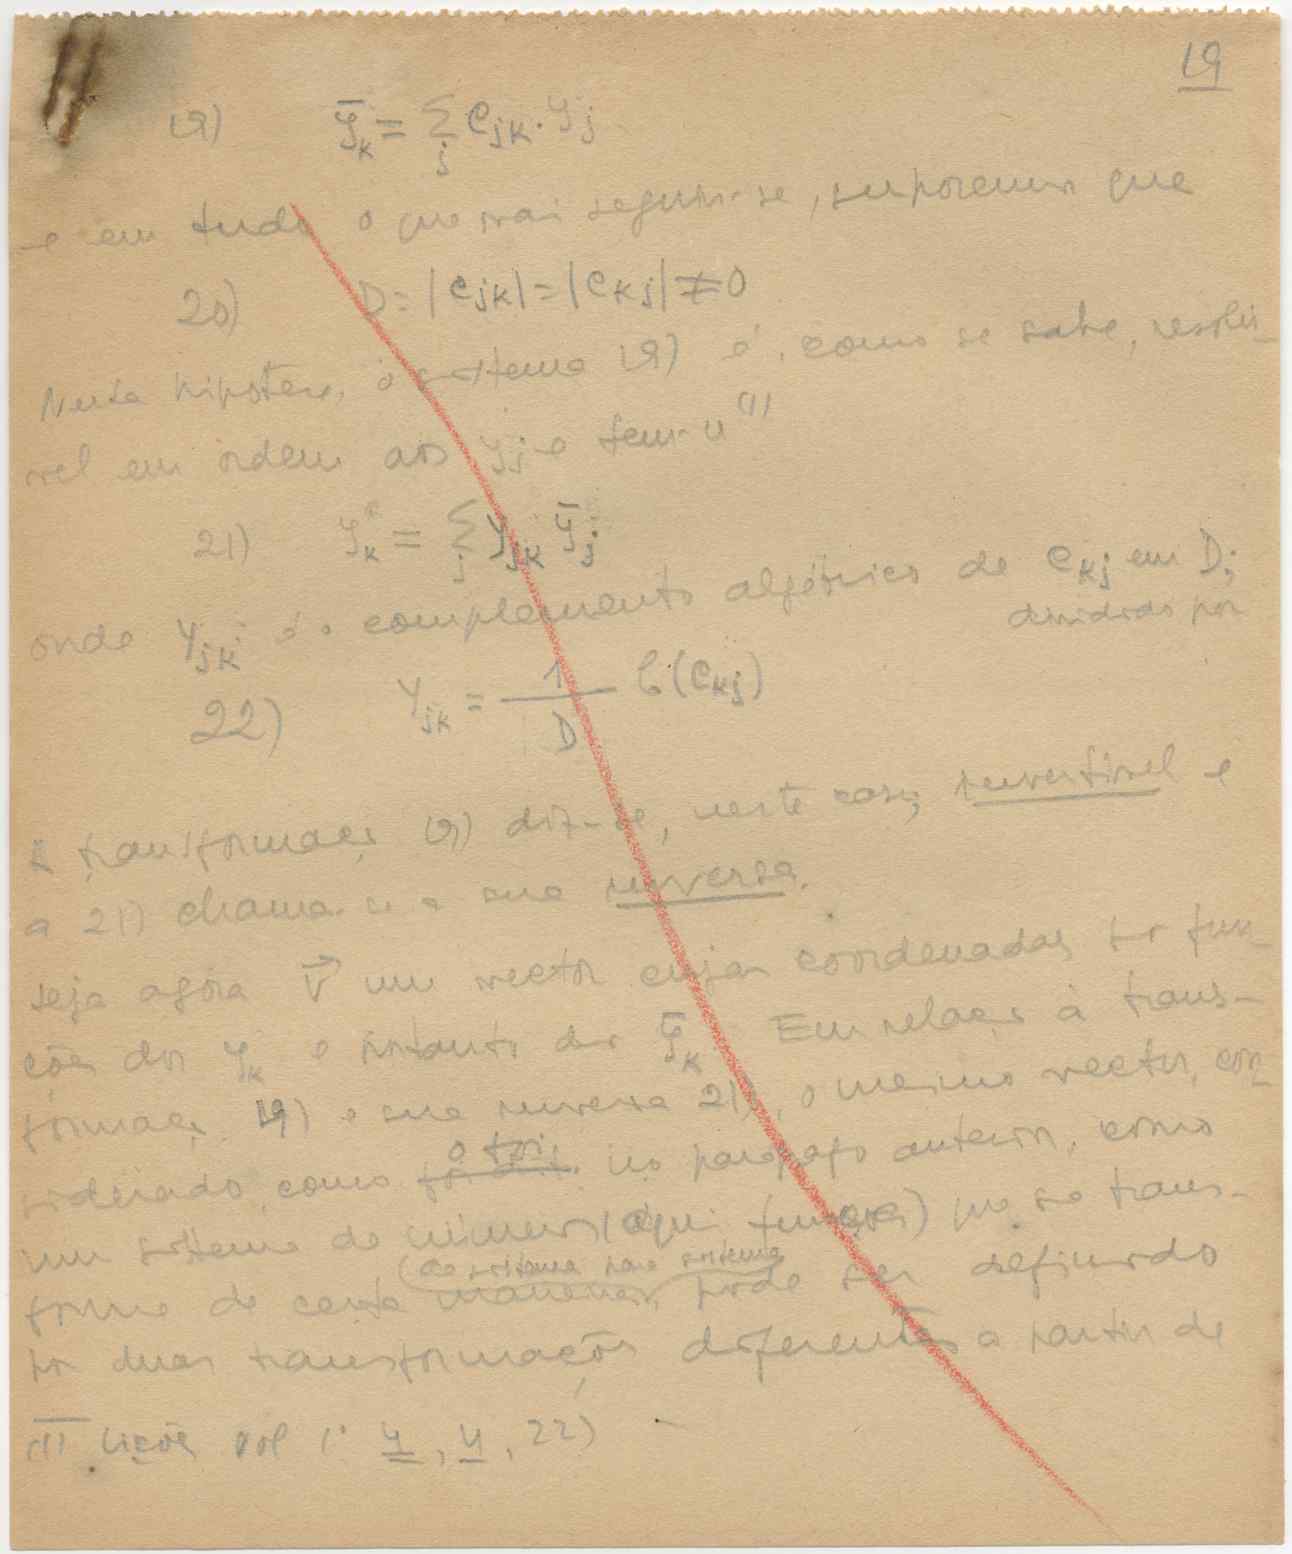 19
19) ȳ_k = Σ_j c_jk . y_j
e em tudo o que vai seguir-se, suporemos que
20) D = |c_jk| = |c_kj| ≠ 0
Nesta hipótese, o sistema 19) é, como se sabe, resolú-
vel em ordem aos y_j e tem-se (1)
21) y_k = Σ_j γ_jk ȳ_j
onde γ_jk é o complemento algébrico de c_kj em D;
dividido por
22) γ_jk = 1/D C(c_kj)
A transformação 19) diz-se, neste caso, reversível e
a 21) chama-se a sua inversa.
Seja agora V⃗ um vector cujas coordenadas são fun-
ções dos y_k e portanto dos ȳ_k. Em relação à trans-
formação 19) e sua inversa 21), o mesmo vector, con-
o foi
siderado, como no parágrafo anterior, como
um sistema de números (aqui funções) que se trans-
(de sistema para sistema
forme de certa maneira, pode ser definido
por duas transformações diferentes a partir de
(1) Lições vol 1º 4, 4, 22)